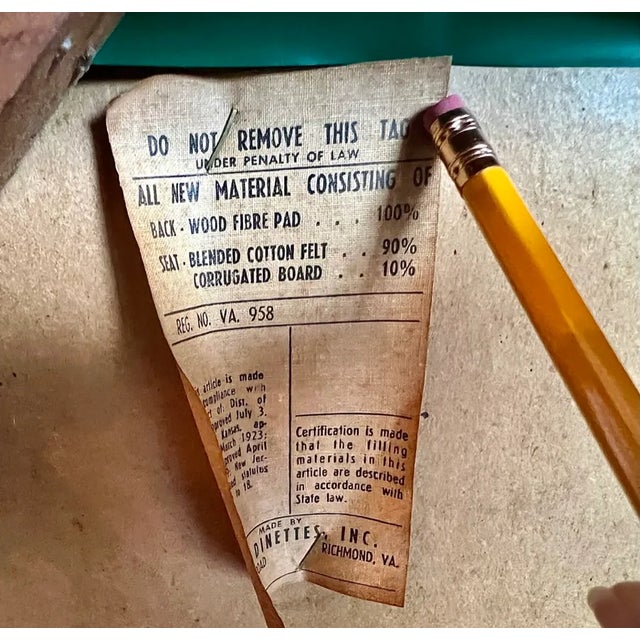 DO NOT REMOVE THIS TAG
UNDER PENALTY OF LAW
ALL NEW MATERIAL CONSISTING OF
BACK - WOOD FIBRE PAD . . . 100%
SEAT - BLENDED COTTON FELT . . 90%
CORRUGATED BOARD . . 10%
REG. NO. VA. 958
article is made
compliance with
of, Dist. of
July 3,
Kansas, ap-
March 1923;
April
New Jer-
statutes
to 18.
Certification is made
that the filling
materials in this
article are described
in accordance with
State law.
MADE BY
DINETTES, INC.
RICHMOND, VA.